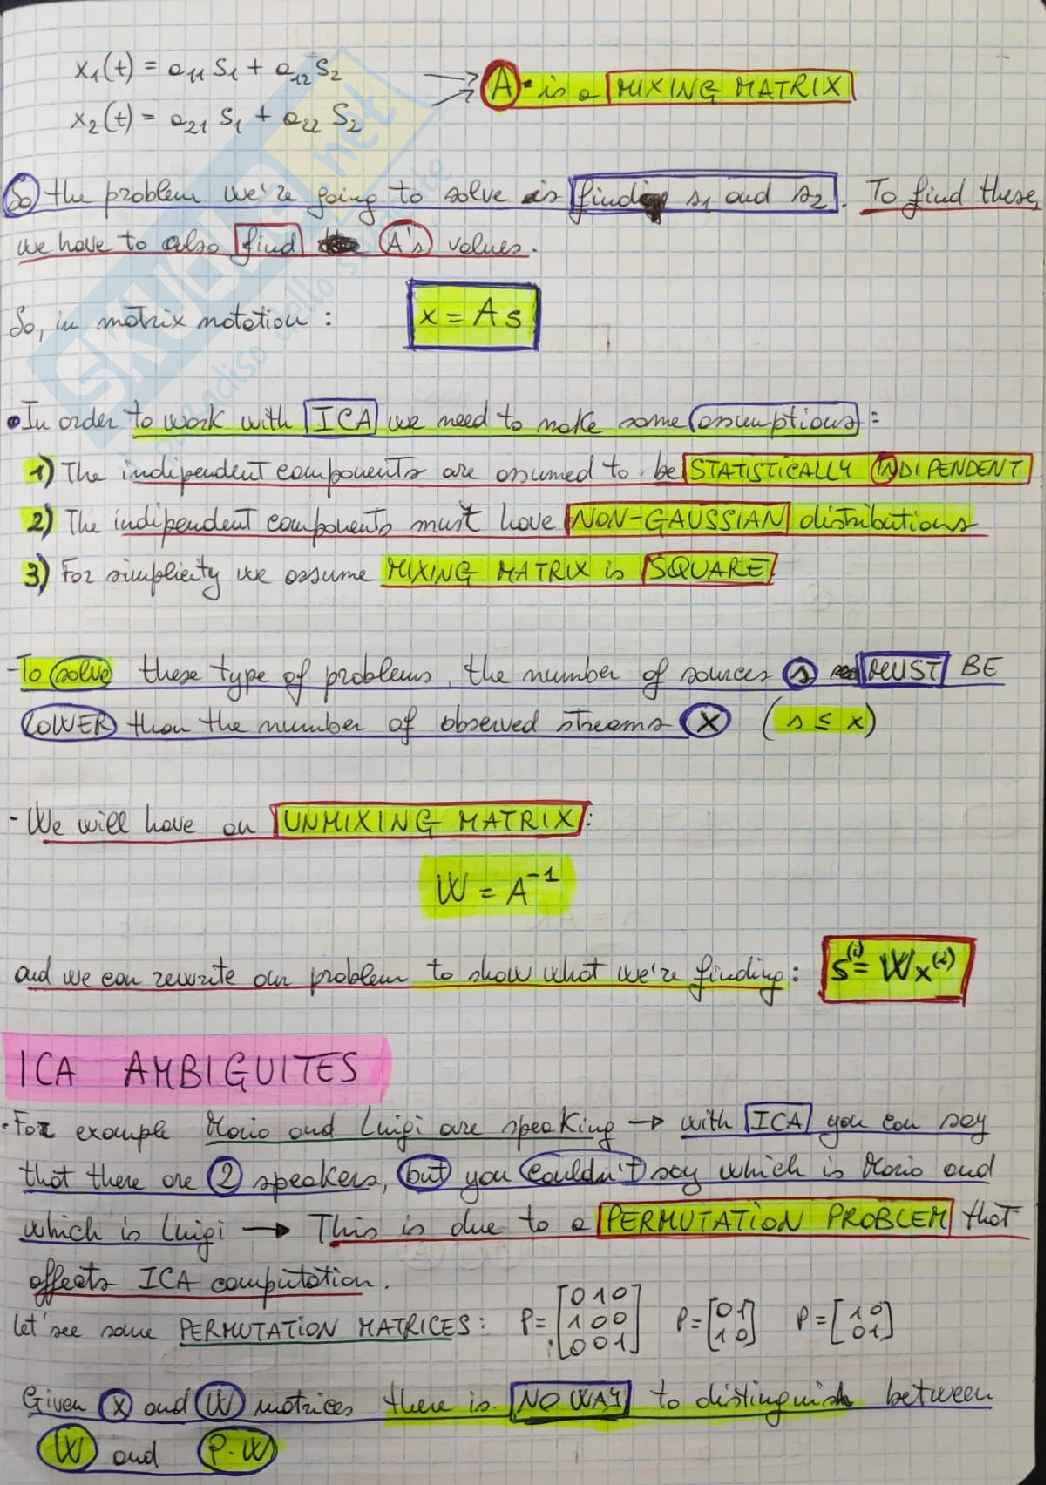 x₁(t) = a₁₁ s₁ + a₁₂ s₂
A is a MIXING MATRIX
x₂(t) = a₂₁ s₁ + a₂₂ s₂
So the problem we're going to solve is find s₁ and s₂. To find these,
we have to also find A's values.
So, in matrix notation: x = As
• In order to work with ICA we need to make some assumptions:
1) The indipendent components are assumed to be STATISTICALLY INDIPENDENT
2) The indipendent components must have NON-GAUSSIAN distributions
3) For simplicity we assume MIXING MATRIX is SQUARE
- To solve these type of problems, the number of sources s MUST BE
LOWER than the number of observed streams x (s ≤ x)
- We will have an UNMIXING MATRIX:
W = A⁻¹
and we can rewrite our problem to show what we're finding: s⁽ⁱ⁾ = Wx⁽ⁱ⁾
ICA AMBIGUITES
• For example Mario and Luigi are speaking → with ICA you can say
that there are 2 speakers, but you couldn't say which is Mario and
which is Luigi → This is due to a PERMUTATION PROBLEM that
affects ICA computation.
Let'see some PERMUTATION MATRICES: P = [0 1 0; 1 0 0; 0 0 1] P = [0 1; 1 0] P = [1 0; 0 1]
Given x and W matrices there is NO WAY to distinguish between
W and P·W